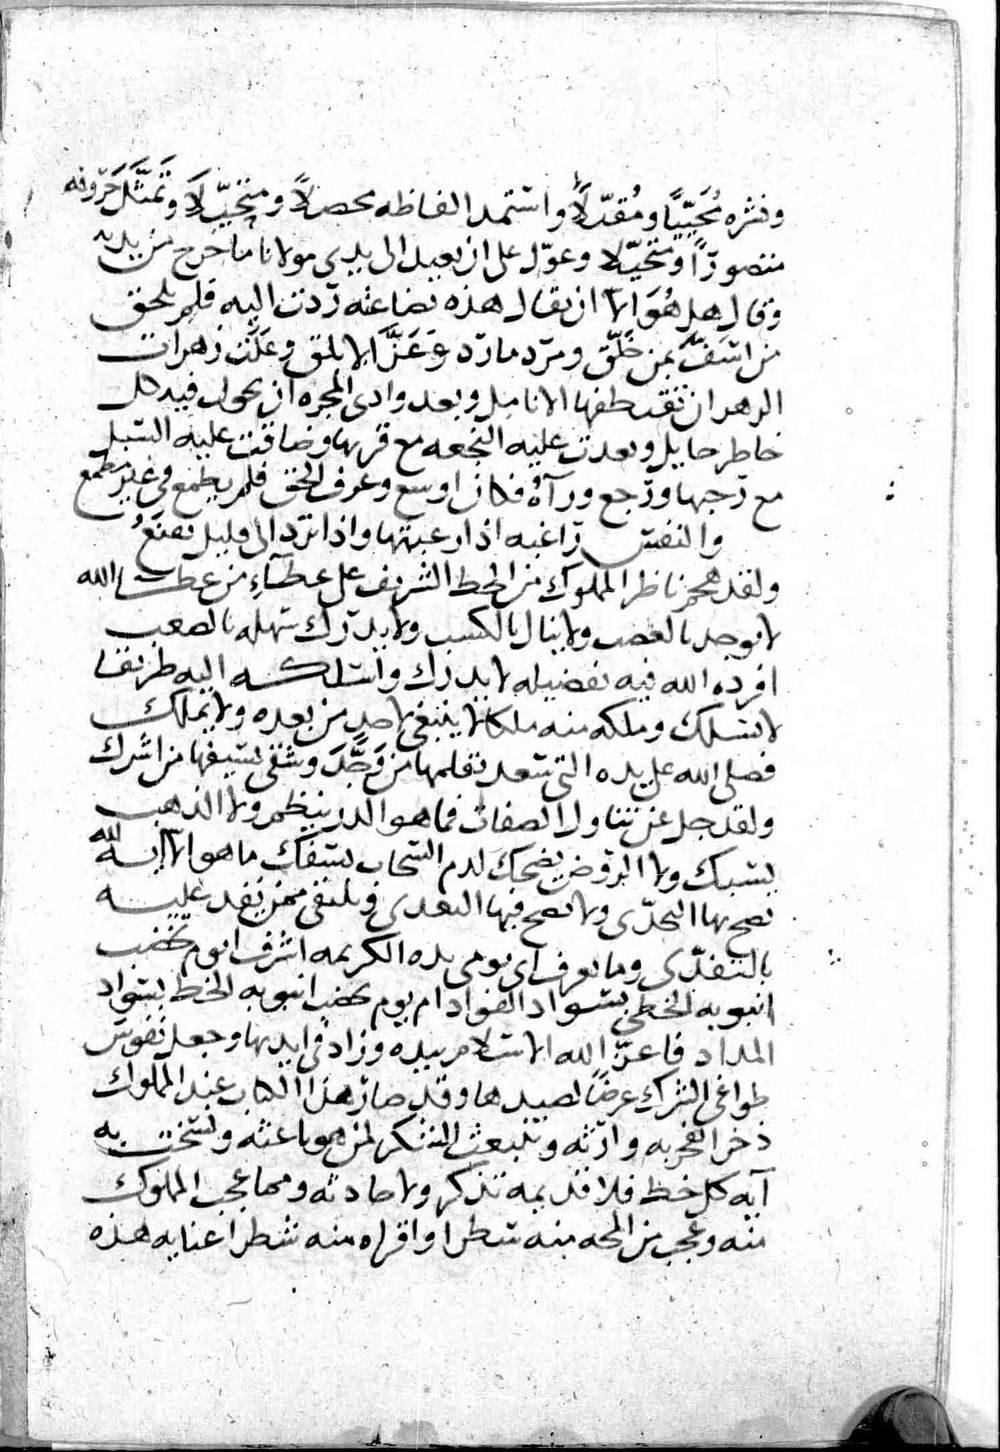 ونثره مُحَيَّيًا ومُقبّلًا واستملا الفاظه محصلًا ومتخيّلًا وتمثّل حروفه
متصوّرًا ومتخيّلا وعوّل على ان يعيد الى يدي مولانا ما خرج من يديه
وقال هل هُوَ الا ان يقال هذه بضاعته ردّت اليه فلم يلحق
من اسَفَّ بمن حَلّق ومرّد مارد وعَزَّ الابلق وعلَت زهرات
الزهر ان تقتطفها الانامل وبعد وادى المجره ان يجول فيه كل
خاطر جايل وبعدت عليه النجعه مع قربها وضاقت عليه السبل
مع رحبها ورجع ورآهُ فكان اوسع وعرف الحق فلم يطمع في غير مطمع
والنفس راغبه اذا رغبتها واذا ترد الى قليل تقنَعُ
ولقد هجم ناظر المملوك من الخط الشريف على عطآءٍ من عطـاء الله
لا يوجد بالغصب ولا ينال بالكسب ولا يدرك سهله بالصعب
افرده الله فيه بفضيله لا يدرك واسلكه اليه طريقا
لا تسلك وملكه منه ملكا لا ينبغي لاحد من بعده ولا يملك
فصلى الله على يده التي سعد بقلمها من وَحَّدَ وشقي بسيفها من اشرك
ولقد جل عن تناول الصفات فما هو الدر ينظم ولا الذهب
يسبك ولا الروض يضحك لدم السحاب يسفك ما هو الا آيـة لله
يصح بها التحدّى ولا يصح فيها التعدى ونلتقي ممن نفد عليـه
بالتفدّى وما يعرف اى يومى يده الكريمه اشرف ايوم يخضب
انبوبه الخطي بسواد الفواد ام يوم يخضب انبوبه الخط بسواد
المداد فاعزّ الله الاسلام بيده وزاد في ايدها وجعل نفوس
طواغى الشرك عرضًا لصيدها وقد صار هذا الكتاب عند المملوك
ذخر الفخر به وارثه وينبعث الشكر لمن هو باعثه ونسخت به
آيه كل خط فلا قديمه تذكر ولا حادثه ومما عجب المملوك
منه وعجب من المحه منه سطرا واقراه منه شطرا عنايه هذه